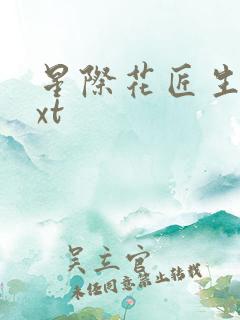 星際花匠生
xt
吴主官
未任同意禁止转载